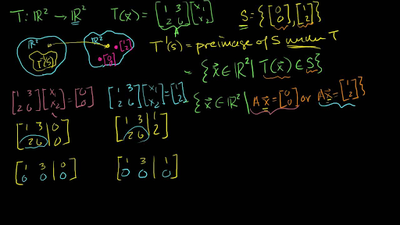 T: ℝ² → ℝ² T(x⃗) = [1 3; 2 6][x₁; x₂] S = {[0; 0], [1; 2]}
A
ℝ² ℝ² [1; 2] [0; 0] T⁻¹(S)
T⁻¹(S) = preimage of S under T
= {x⃗ ∈ ℝ² | T(x⃗) ∈ S}
[1 3; 2 6][x₁; x₂] = [0; 0] [1 3; 2 6][x₁; x₂] = [1; 2] {x⃗ ∈ ℝ² | Ax⃗ = [0; 0] or Ax⃗ = [1; 2]}
[1 3 | 0; 2 6 | 0] [1 3 | 1; 2 6 | 2]
[1 3 | 0; 0 0 | 0] [1 3 | 1; 0 0 | 0]